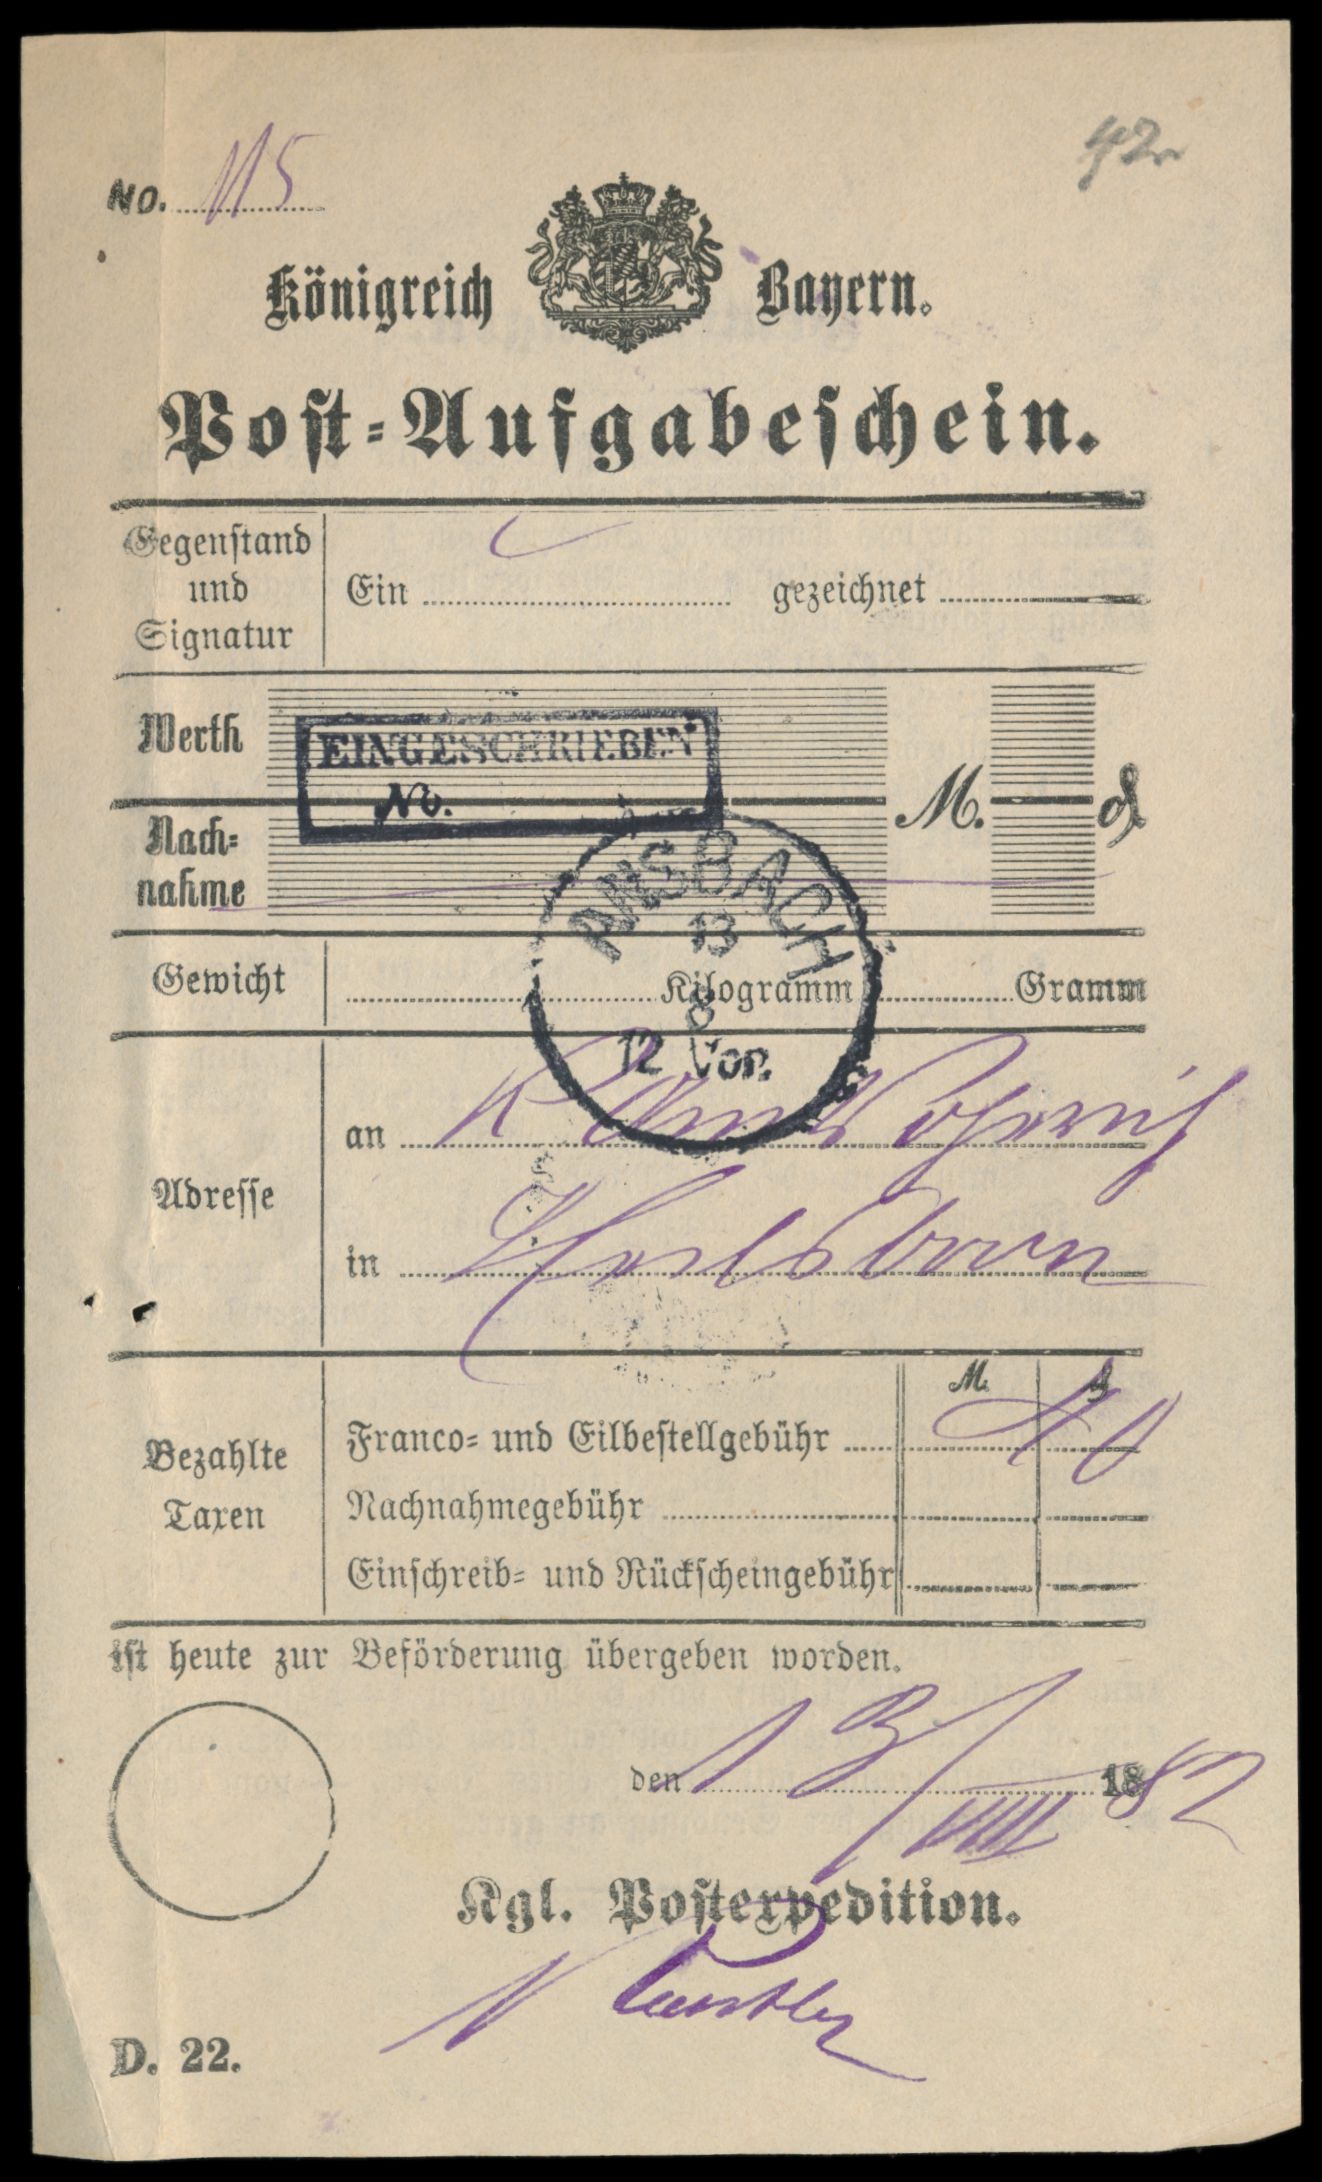 42
No. 115
Königreich Bayern.
Post-Aufgabeschein.
Gegenstand und Signatur
Ein gezeichnet
Werth
EINGESCHRIEBEN
No.
M. ₰
Nach-
nahme
ANSBACH
13
8
12 Vor.
Gewicht
Kilogramm Gramm
Adresse
an K
in Heilsbronn
Bezahlte Taxen
M. ₰
Franco- und Eilbestellgebühr 40
Nachnahmegebühr
Einschreib- und Rückscheingebühr
ist heute zur Beförderung übergeben worden.
den 13/VIII 1882
Kgl. Postexpedition.
D. 22.